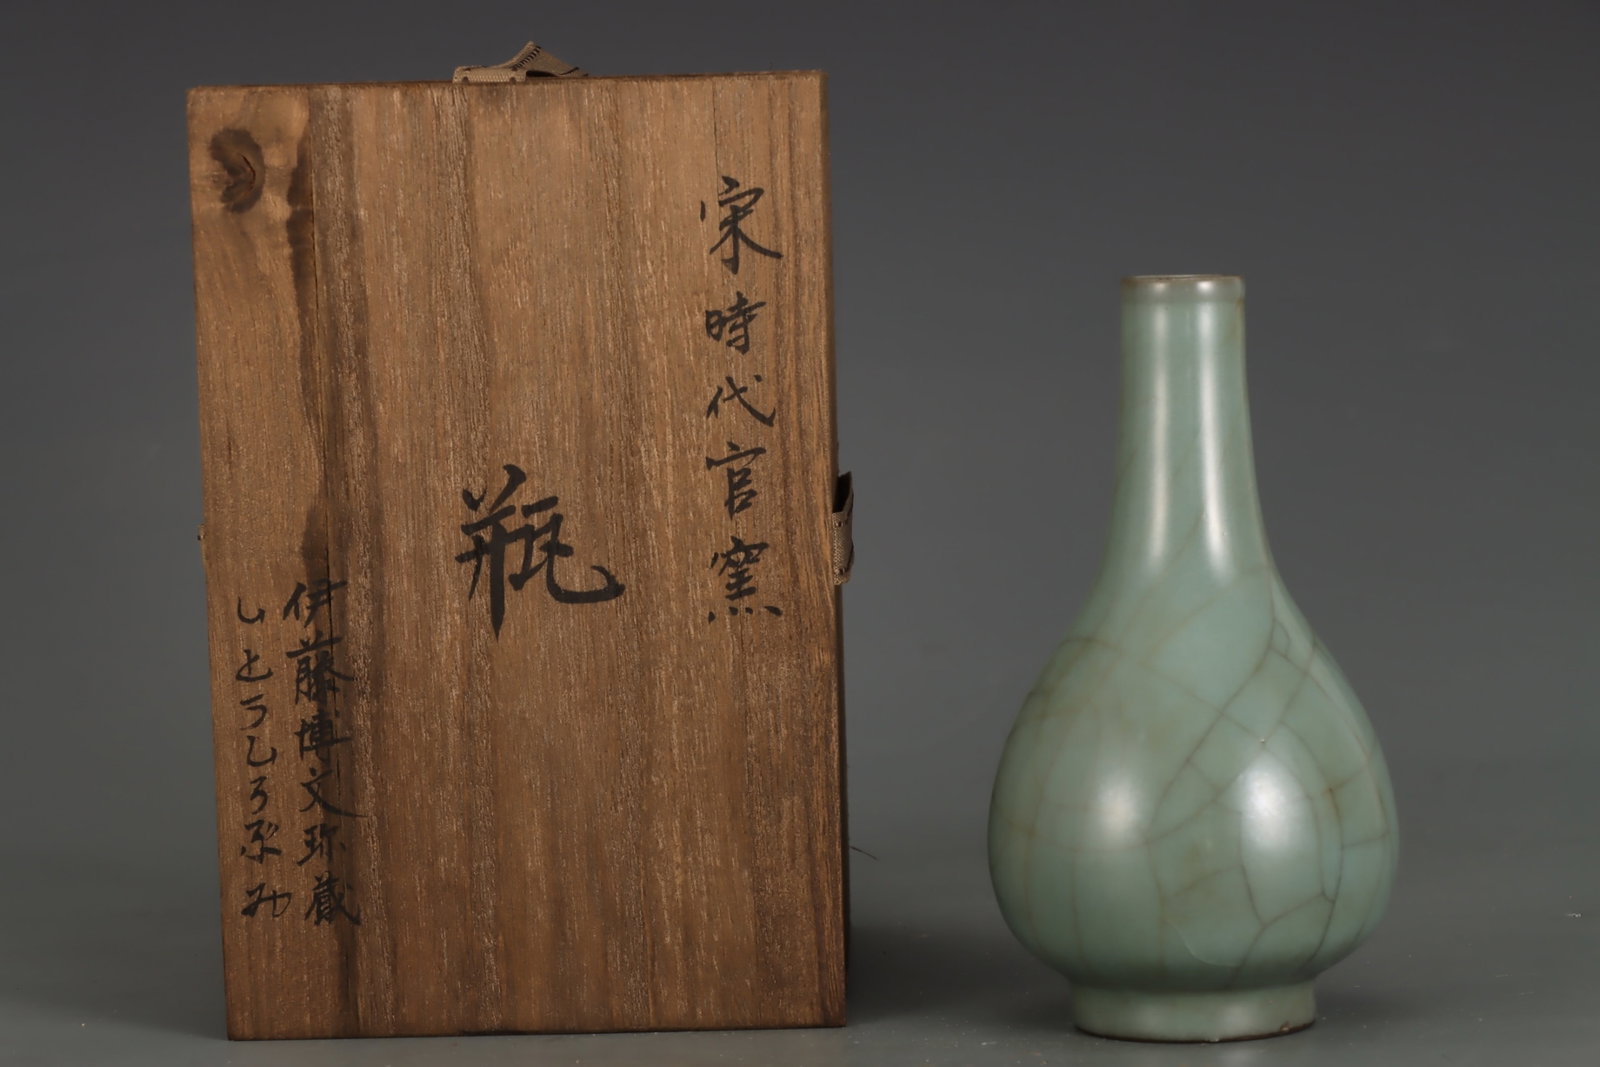 宋時代官窯
瓶
伊藤博文珎蔵
いとうひろぶみ